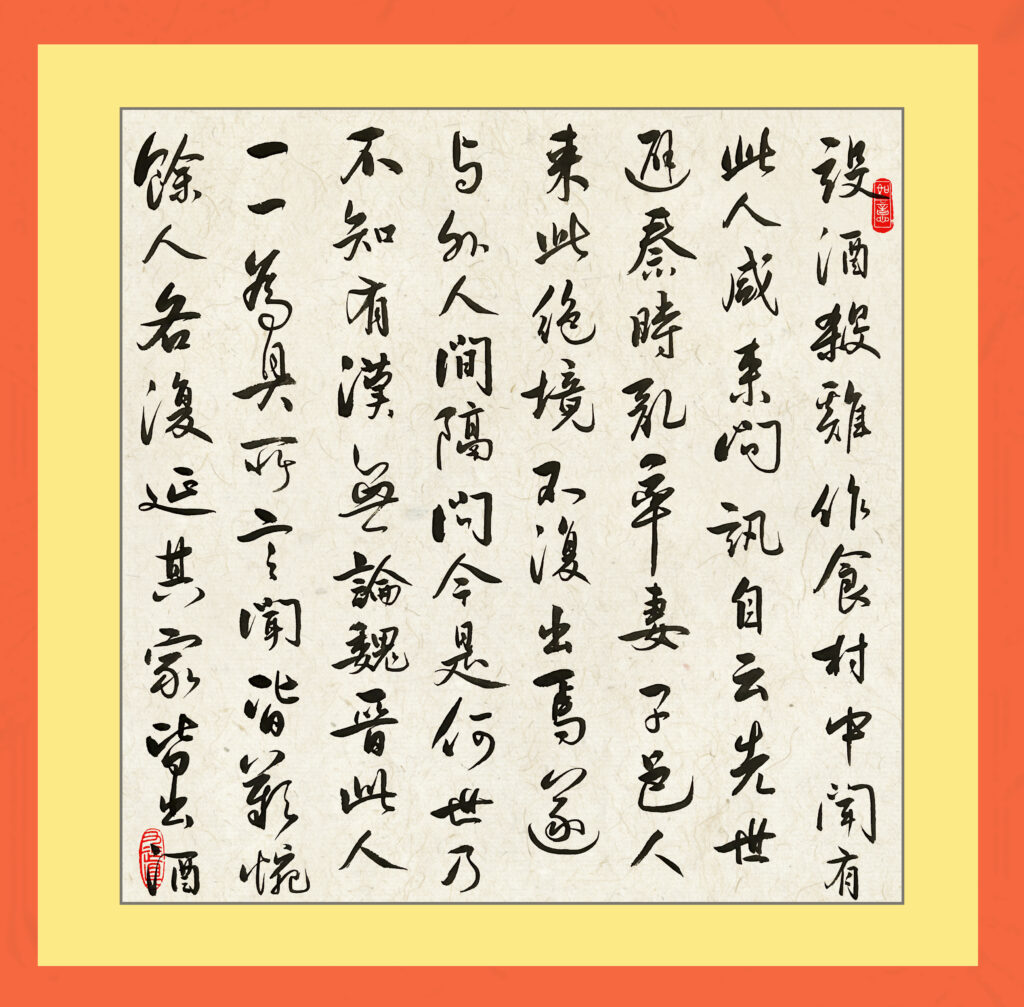 設酒殺雞作食村中聞有
此人咸来問訊自云先世
避秦時亂率妻子邑人
来此絶境不復出焉遂
与外人間隔問今是何世乃
不知有漢無論魏晉此人
一一為具所言聞皆歎惋
餘人各復延其家皆出酒
如意